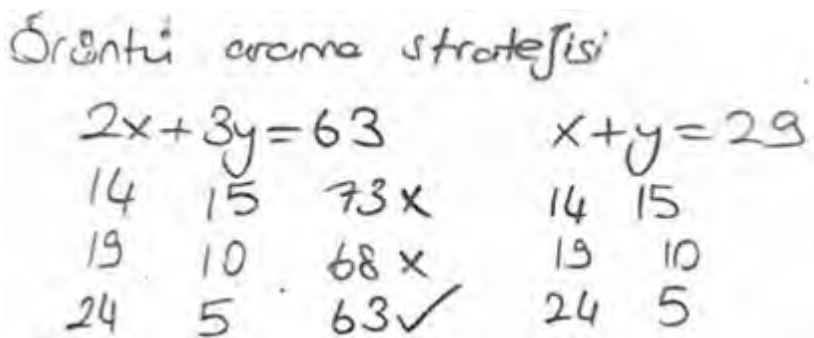 Örüntü arama stratejisi
2x+3y=63 x+y=29
14 15 73 x 14 15
19 10 68 x 19 10
24 5 63 ✓ 24 5